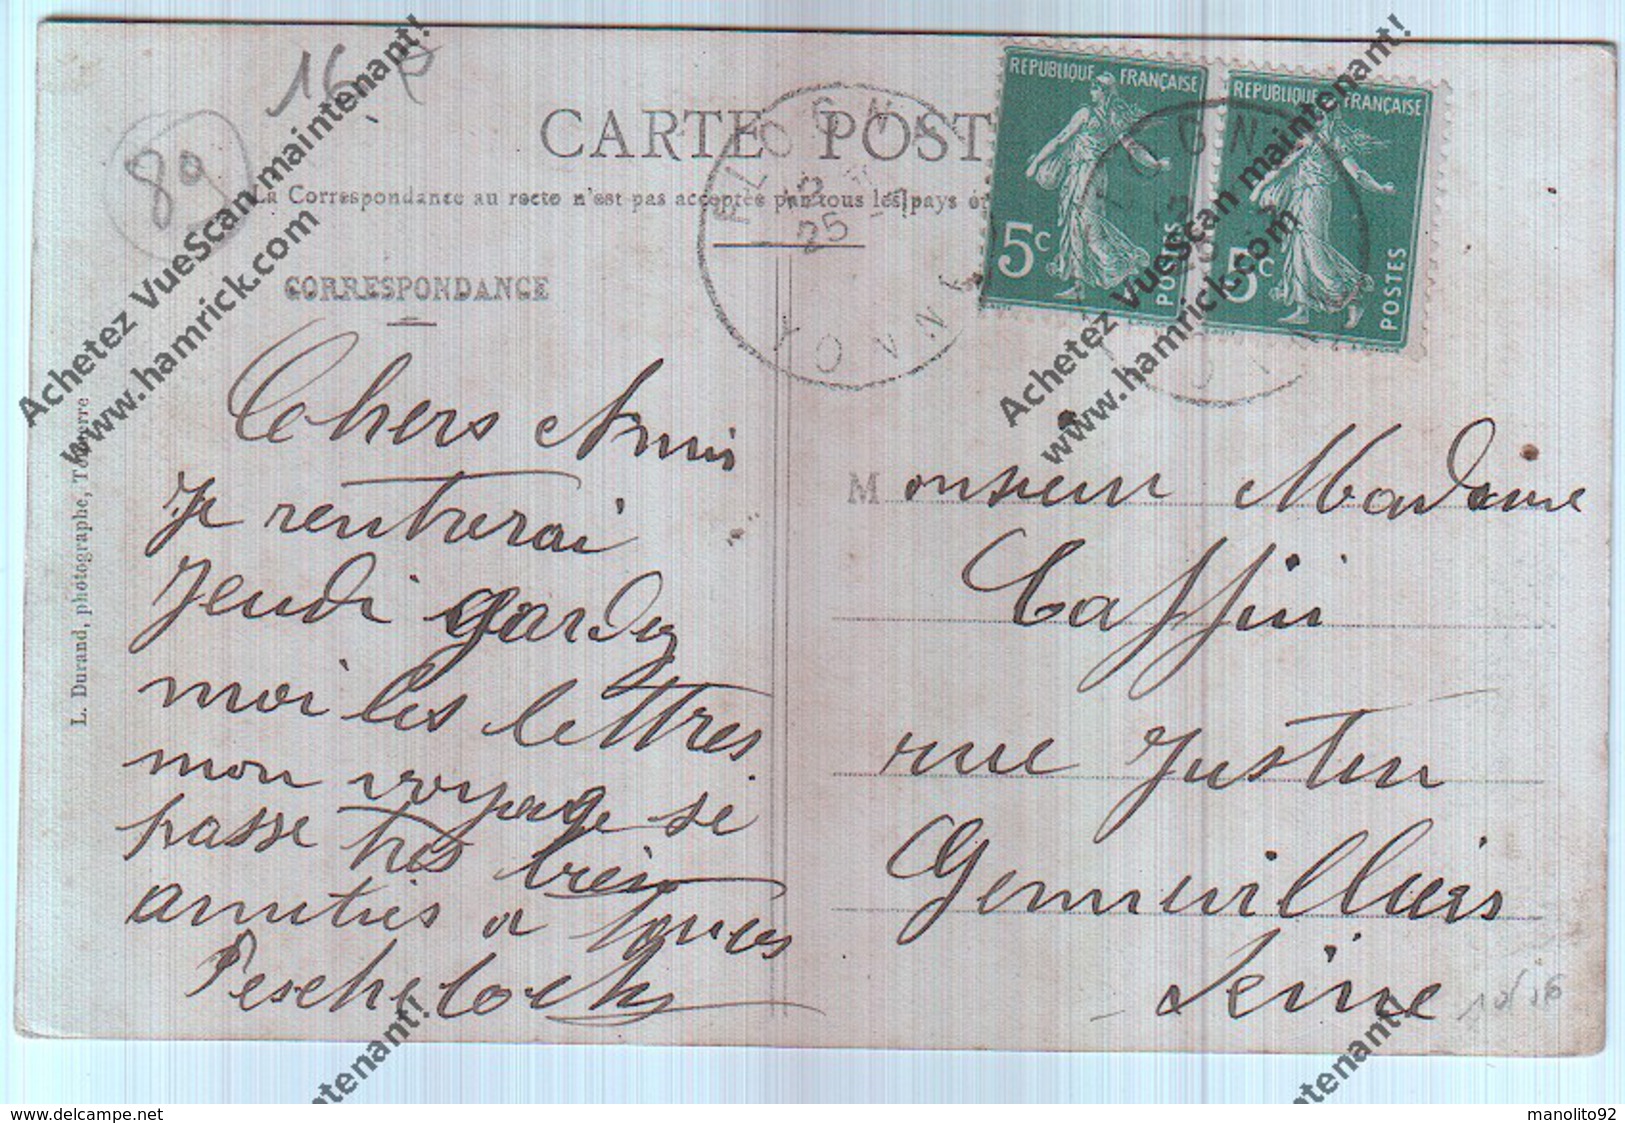 16
89
CARTE POST
La Correspondance au recto n'est pas acceptée par tous les pays
CORRESPONDANCE
RÉPUBLIQUE FRANÇAISE
5c
POSTES
RÉPUBLIQUE FRANÇAISE
5c
POSTES
FLOGNY
25
YONNE
L. Durand, photographe, Tonnerre
Chers Amis
Je rentrerai
Jeudi gardez
moi les lettres.
mon voyage se
passe très bien
amitiés a tous
Monsieur Madame
Caffin
rue Justin
Gennevilliers
Seine
Achetez VueScan maintenant!
www.hamrick.com
Achetez VueScan maintenant!
www.hamrick.com
tenant!
tenant!
www.delcampe.net
manolito92